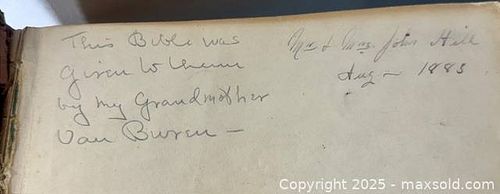 This Bible was
given to them
by my Grandmother
Van Buren —
Mr & Mrs. John Hill
Aug – 1883
Copyright 2025 - maxsold.com